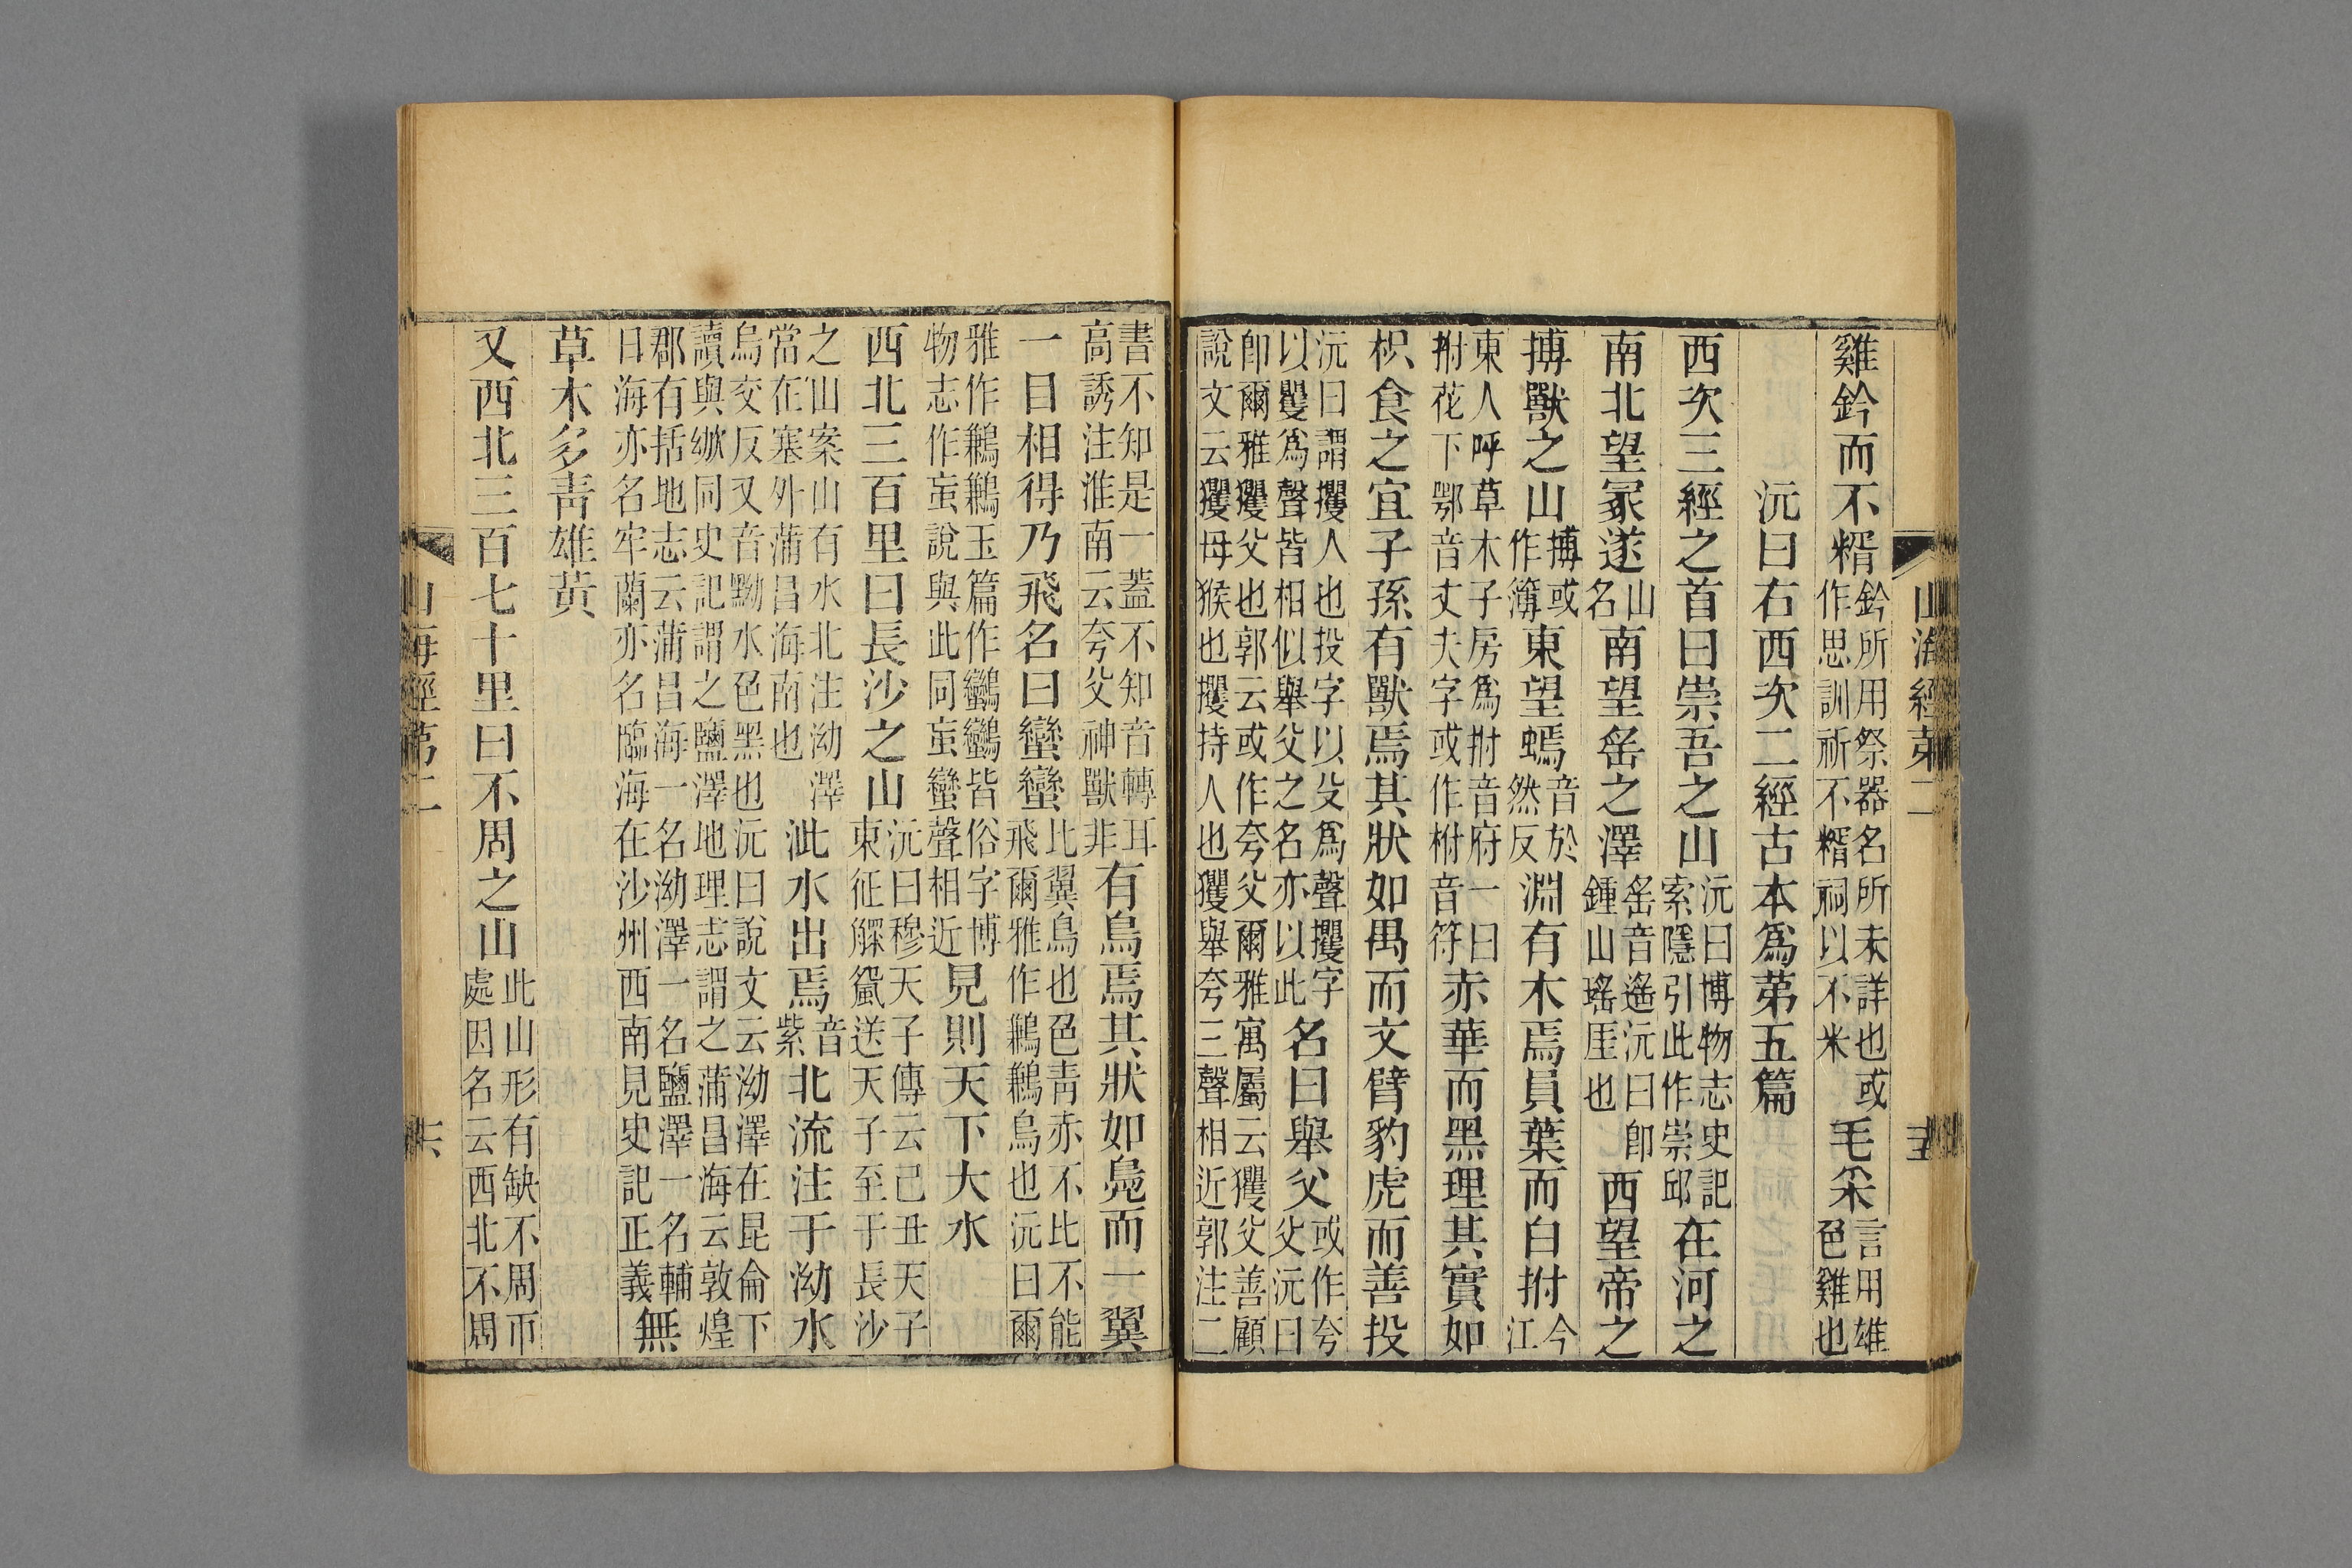 山海經苐二
雞鈐而不糈鈐所用祭器名所未詳也或
作思訓祈不糈祠以不米毛采言用雄
色雞也
沅曰右西次二經古本爲苐五篇
西次三經之首曰崇吾之山沅曰博物志史記
索隱引此作崇邱在河之
南北望冢遂山
名南望䍃之澤䍃音遙沅曰卽
鍾山瑤厓也西望帝之
搏獸之山搏或
作簿東望䗡音於
然反淵有木焉員葉而白拊今
江
東人呼草木子房爲拊音府一曰
拊花下鄂音丈夫字或作柎音符赤華而黑理其實如
枳食之宜子孫有獸焉其狀如禺而文臂豹虎而善投
沅曰謂攫人也投字以殳爲聲攫字
以矍爲聲皆相似舉父之名亦以此名曰舉父或作夸
父沅曰
卽爾雅玃父也郭云或作夸父爾雅寓屬云玃父善顧
說文云玃母猴也攫持人也玃舉夸三聲相近郭注二
書不知是一蓋不知音轉耳
高誘注淮南云夸父神獸非有鳥焉其狀如鳧而一翼
一目相得乃飛名曰蠻蠻比翼鳥也色青赤不比不能
飛爾雅作鶼鶼鳥也沅曰爾
雅作鶼鶼玉篇作鸞鸞皆俗字博
物志作䖟說與此同䖟蠻聲相近見則天下大水
西北三百里曰長沙之山沅曰穆天子傳云己丑天子
東征送天子至于長沙
之山案山有水北注泑澤
當在塞外蒲昌海南也泚水出焉音
紫北流注于泑水
烏交反又音黝水色黑也沅曰說文云泑澤在昆侖下
讀與同史記謂之鹽澤地理志謂之蒲昌海云敦煌
郡有括地志云蒲昌海一名泑澤一名鹽澤一名輔
日海亦名牢蘭亦名臨海在沙州西南見史記正義無
草木多青雄黃
又西北三百七十里曰不周之山此山形有缺不周帀
處因名云西北不周
山海經苐二